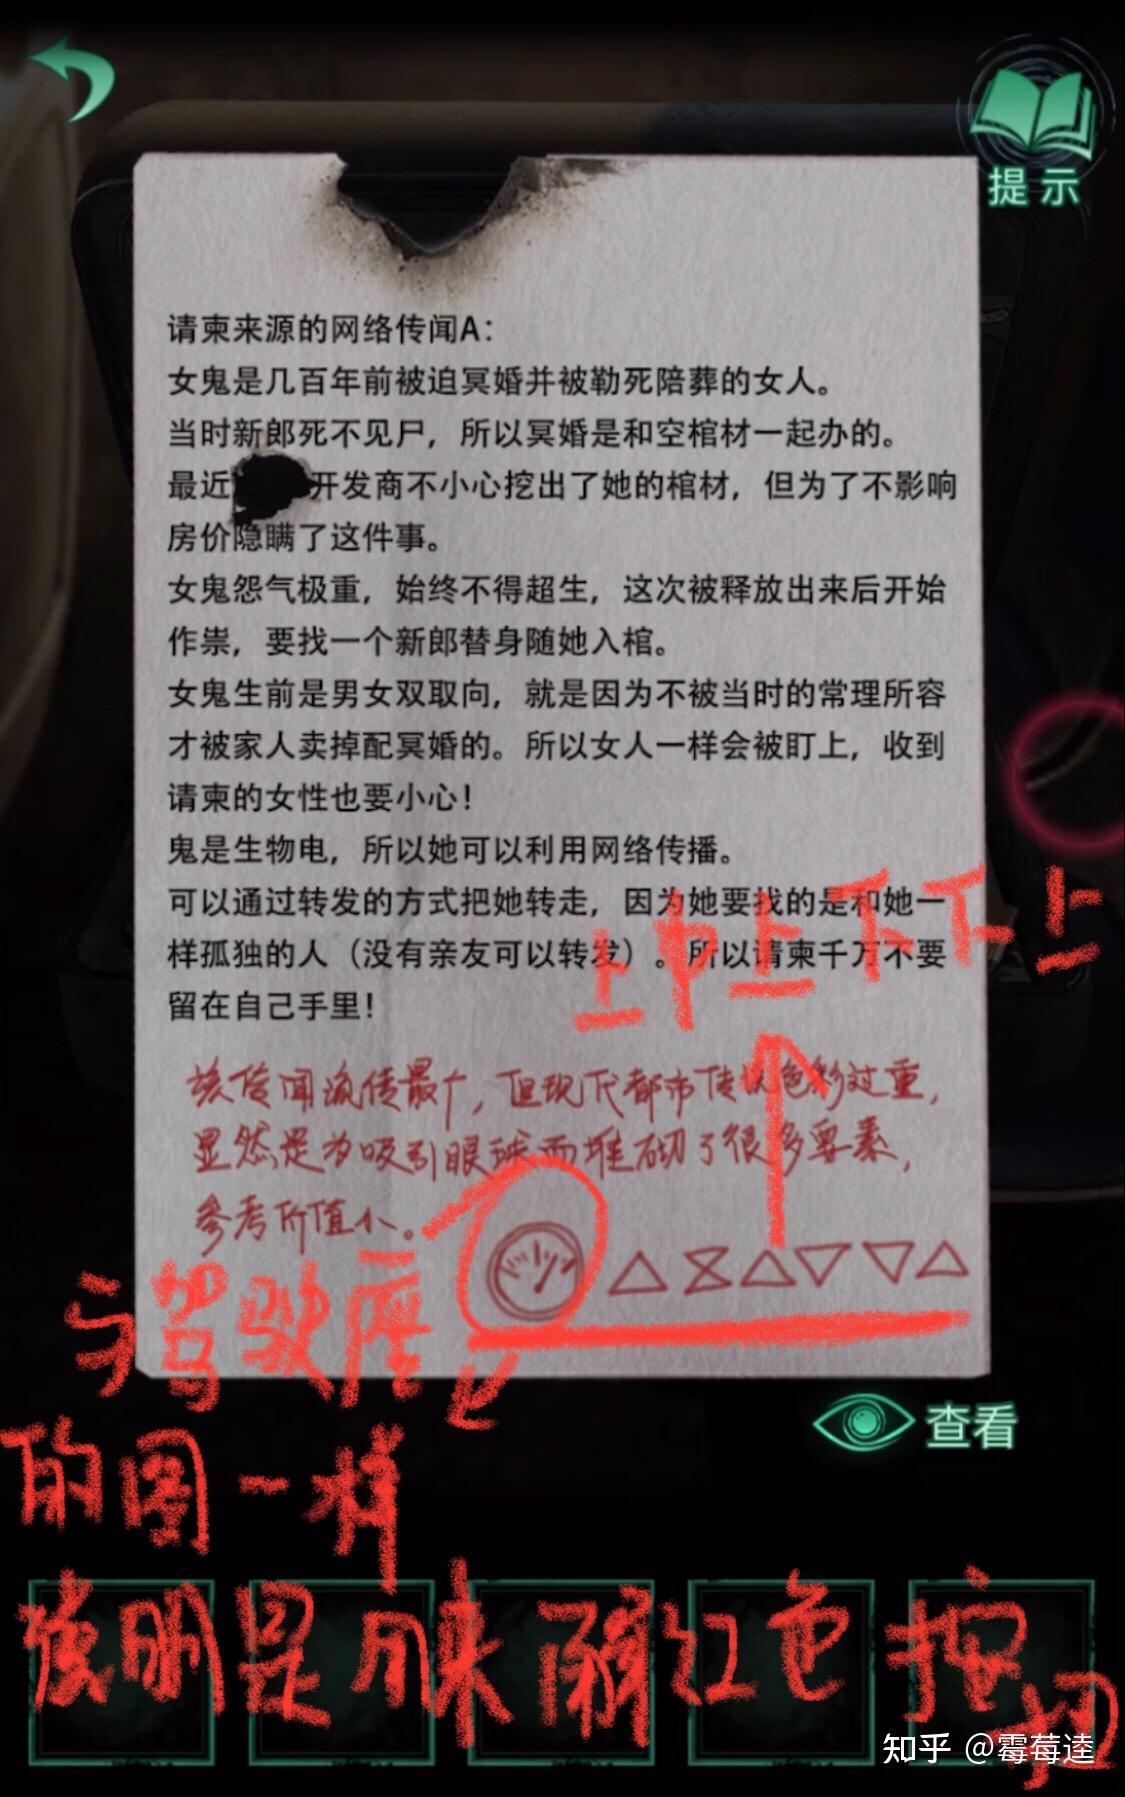 提示
请柬来源的网络传闻A：
女鬼是几百年前被迫冥婚并被勒死陪葬的女人。
当时新郎死不见尸，所以冥婚是和空棺材一起办的。
最近 开发商不小心挖出了她的棺材，但为了不影响
房价隐瞒了这件事。
女鬼怨气极重，始终不得超生，这次被释放出来后开始
作祟，要找一个新郎替身随她入棺。
女鬼生前是男女双取向，就是因为不被当时的常理所容
才被家人卖掉配冥婚的。所以女人一样会被盯上，收到
请柬的女性也要小心！
鬼是生物电，所以她可以利用网络传播。
可以通过转发的方式把她转走，因为她要找的是和她一
样孤独的人（没有亲友可以转发）。所以请柬千万不要
留在自己手里！
上中上下下上
该传闻流传最广，但现代都市传说色彩过重，
显然是为吸引眼球而堆砌了很多要素，
参考价值小。
与驾驶座上
的图一样
说明是用来解红色按钮
查看
知乎 @霉莓逵